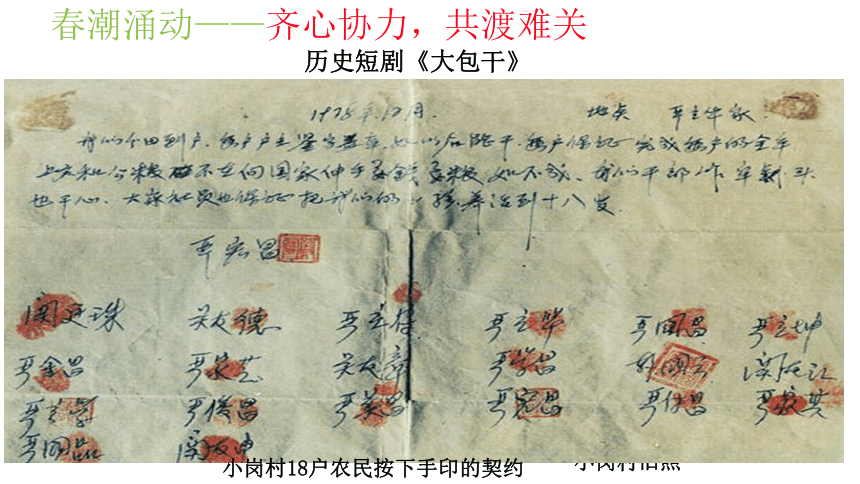 春潮涌动——齐心协力，共渡难关
历史短剧《大包干》
1978年12月. 地点 严立华家.
我们分田到户.每户户主签字盖章.如以后能干.每户保证完成每户的全年
上交和公粮 不在向国家伸手要钱要粮.如不成.我们干部作牢杀头
也干心.大家社员也保证把我们的小孩养活到十八岁.
严宏昌
关廷珠 关友德 严立 严立华 严国昌 严立坤
严金昌 严家芝 关友章 严学昌 韩国云 关友江
严立学 严俊昌 严美昌 严宏昌 严付昌 严家其
严国品 关友申
小岗村18户农民按下手印的契约
小岗村旧照